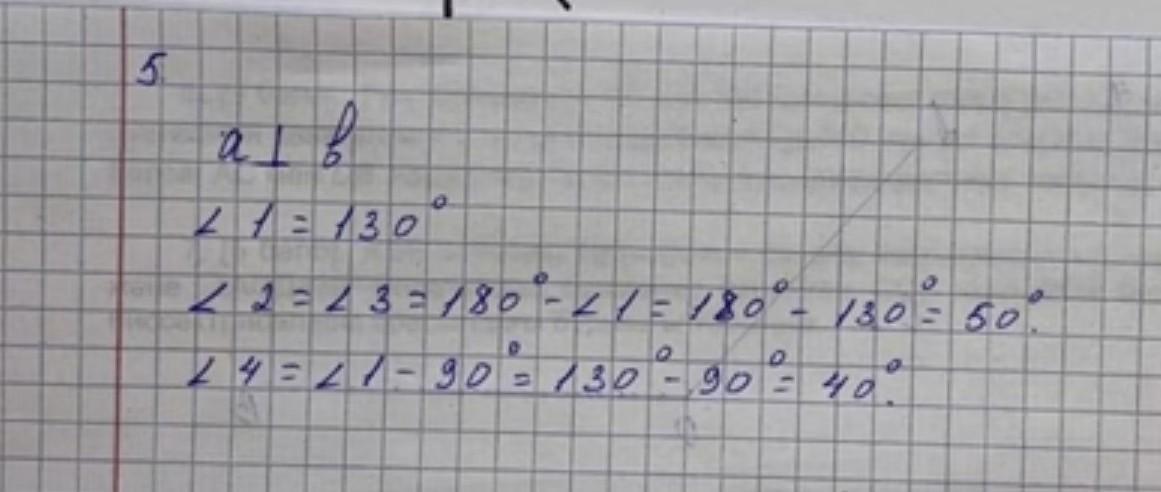 5
a ⊥ b
∠ 1 = 130°
∠ 2 = ∠ 3 = 180° - ∠ 1 = 180° - 130° = 50°.
∠ 4 = ∠ 1 - 90° = 130° - 90° = 40°.